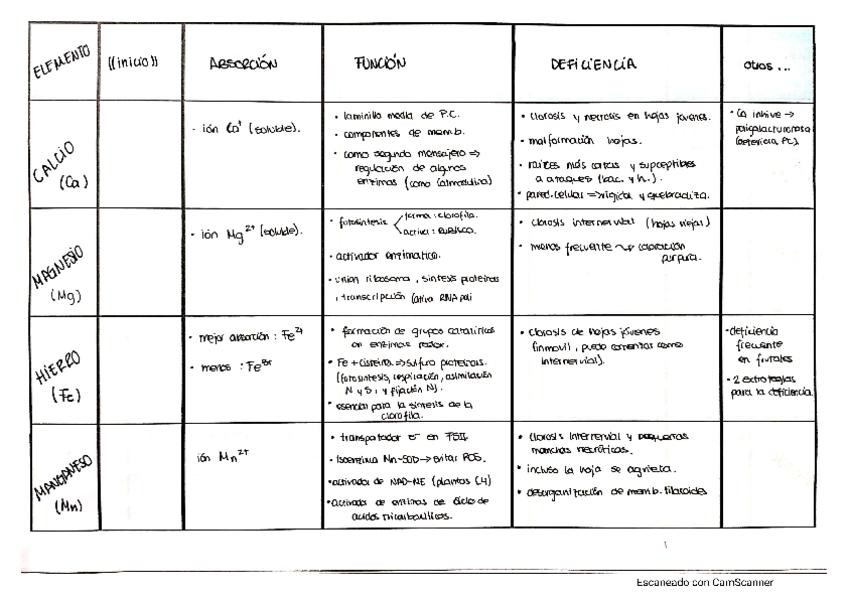 ELEMENTO
((inicio))
ABSORCIÓN
FUNCIÓN
DEFICIENCIA
otros ...
CALCIO
(Ca)
· ión Ca⁺ (soluble).
• laminilla media de P.C.
• componentes de memb.
• como segundo mensajero ⇒
regulación de algunas
enzimas (como calmodulina)
• clorosis y necrosis en hojas jóvenes.
• malformación hojas.
• raíces más cortas y
a ataques (bac. y h.).
• pared celular ⇒ rígida y quebradiza.
• Ca inhive →
(deteriora PC).
MAGNESIO
(Mg)
• ión Mg²⁺ (soluble).
• fotosíntesis
forma: clorofila.
activa: RUBISCO.
• activador enzimático.
• unión ribosoma, síntesis proteínas
, transcripción (activa RNA poli
• clorosis internervial (hojas viejas)
• menos frecuente ⇝ coloración
púrpura.
HIERRO
(Fe)
• mejor absorción: Fe²⁺
• menos: Fe³⁺
• formación de grupos catalíticos
en enzimas redox.
• Fe + cisteína ⇒ sulfuro proteínas.
(fotosíntesis, respiración, asimilación
N y S, y fijación N).
• esencial para la síntesis de la
clorofila.
• clorosis de hojas jóvenes
(inmovil, puede comenzar como
internervial).
• deficiencia
frecuente
en frutales
• 2 estrategias
para la deficiencia.
MANGANESO
(Mn)
ión Mn²⁺
• transportador e⁻ en PSII
• Isoenzima Mn-SOD → evitar ROS.
• activador de NAD-ME (plantas C4)
• activador de enzimas de ciclo de
ácidos tricarboxílicos.
• clorosis internervial y pequeñas
manchas necróticas.
• incluso la hoja se agrieta.
• desorganización de memb. tilacoides
Escaneado con CamScanner